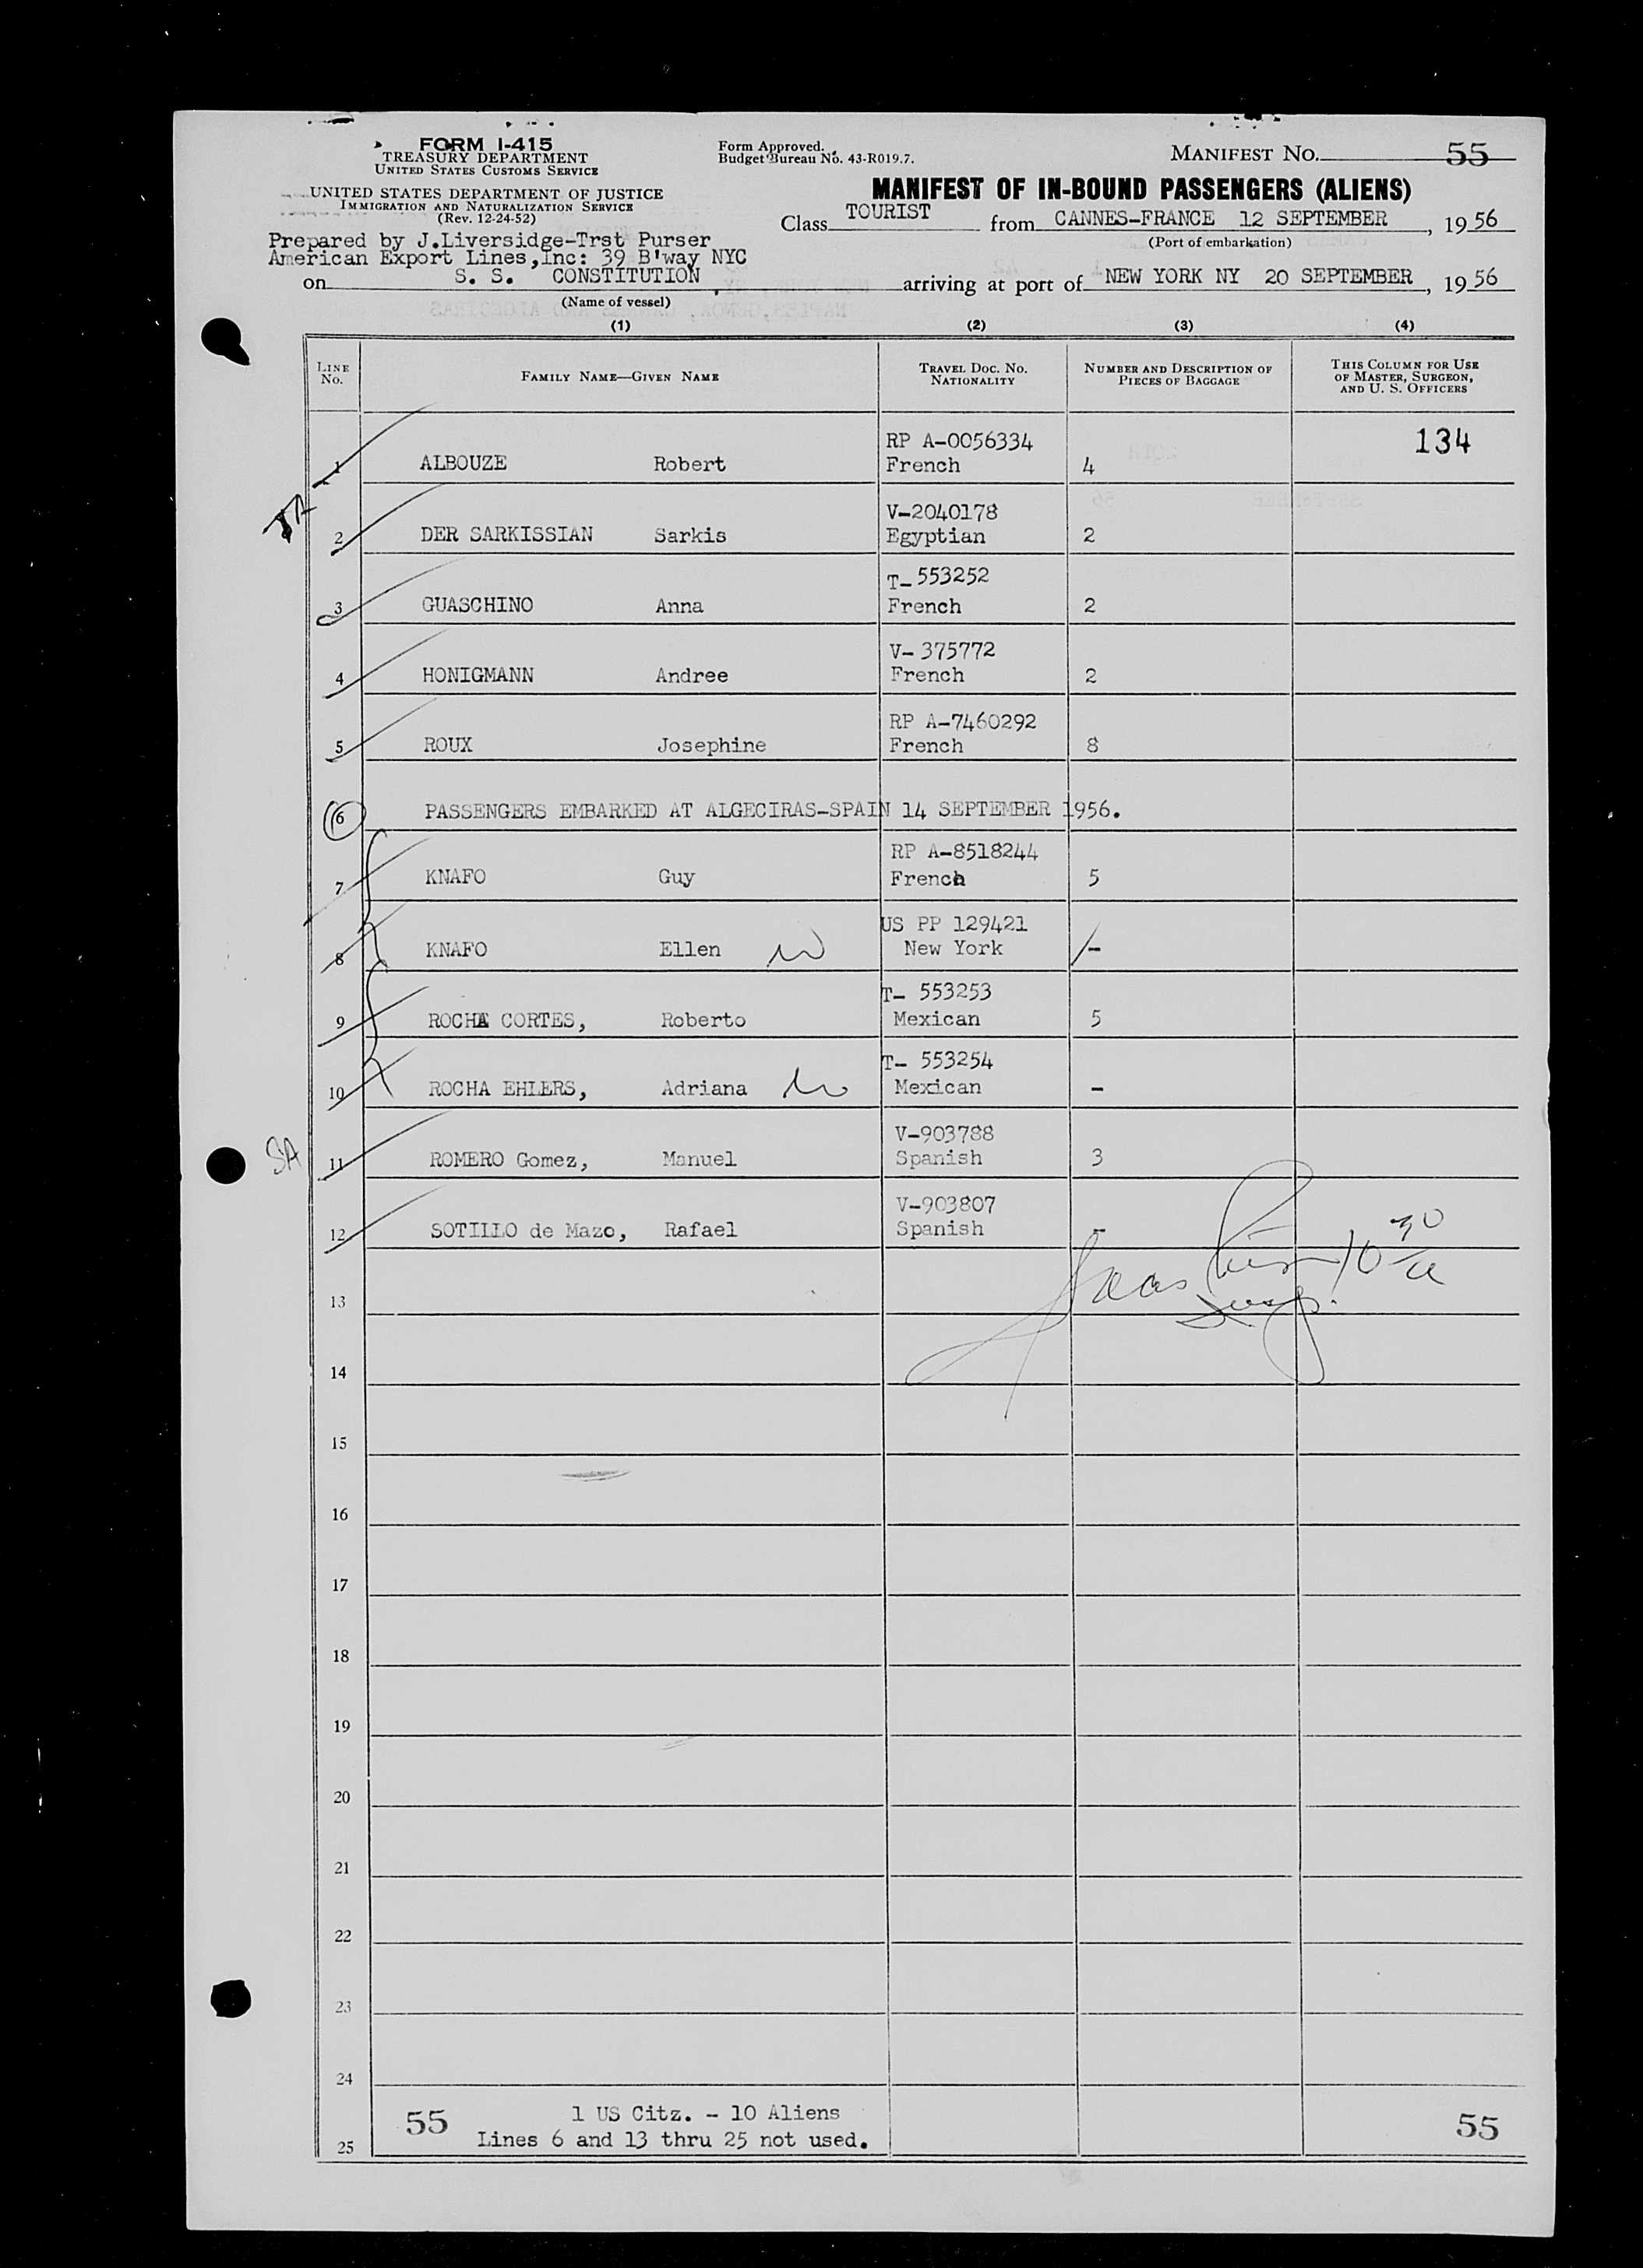 FORM I-415
TREASURY DEPARTMENT
UNITED STATES CUSTOMS SERVICE
UNITED STATES DEPARTMENT OF JUSTICE
IMMIGRATION AND NATURALIZATION SERVICE
(Rev. 12-24-52)
Form Approved.
Budget Bureau No. 43-R019.7.
MANIFEST NO. 55
MANIFEST OF IN-BOUND PASSENGERS (ALIENS)
Class TOURIST from CANNES-FRANCE 12 SEPTEMBER, 1956
(Port of embarkation)
Prepared by J.Liversidge-Trst Purser
American Export Lines,Inc: 39 B'way NYC
on S. S. CONSTITUTION, arriving at port of NEW YORK NY 20 SEPTEMBER, 1956
(Name of vessel)
(1) (2) (3) (4)
LINE NO. FAMILY NAME—GIVEN NAME TRAVEL DOC. NO. NATIONALITY NUMBER AND DESCRIPTION OF PIECES OF BAGGAGE THIS COLUMN FOR USE OF MASTER, SURGEON, AND U. S. OFFICERS
RP A-0056334 134
1 ALBOUZE Robert French 4
V-2040178
2 DER SARKISSIAN Sarkis Egyptian 2
T-553252
3 GUASCHINO Anna French 2
V-375772
4 HONIGMANN Andree French 2
RP A-7460292
5 ROUX Josephine French 8
6 PASSENGERS EMBARKED AT ALGECIRAS-SPAIN 14 SEPTEMBER 1956.
RP A-8518244
7 KNAFO Guy French 5
US PP 129421
8 KNAFO Ellen New York -
T- 553253
9 ROCHA CORTES, Roberto Mexican 5
T- 553254
10 ROCHA EHLERS, Adriana Mexican -
V-903788
SA 11 ROMERO Gomez, Manuel Spanish 3
V-903807
12 SOTILLO de Mazo, Rafael Spanish -
10 30
13
14
15
16
17
18
19
20
21
22
23
24
55 1 US Citz. - 10 Aliens 55
25 Lines 6 and 13 thru 25 not used.